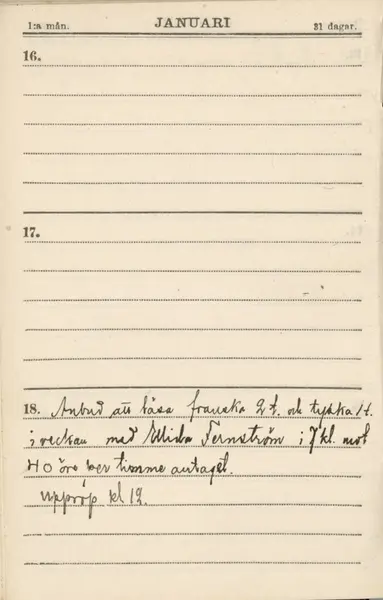 1:a mån. JANUARI 31 dagar.
16.
17.
18. Anbud att läsa franska 2 t. och tyska 1 t.
i veckan med Ellida Fernström i 7 kl. mot
40 öre per timme antaget.
Upprop kl 12.